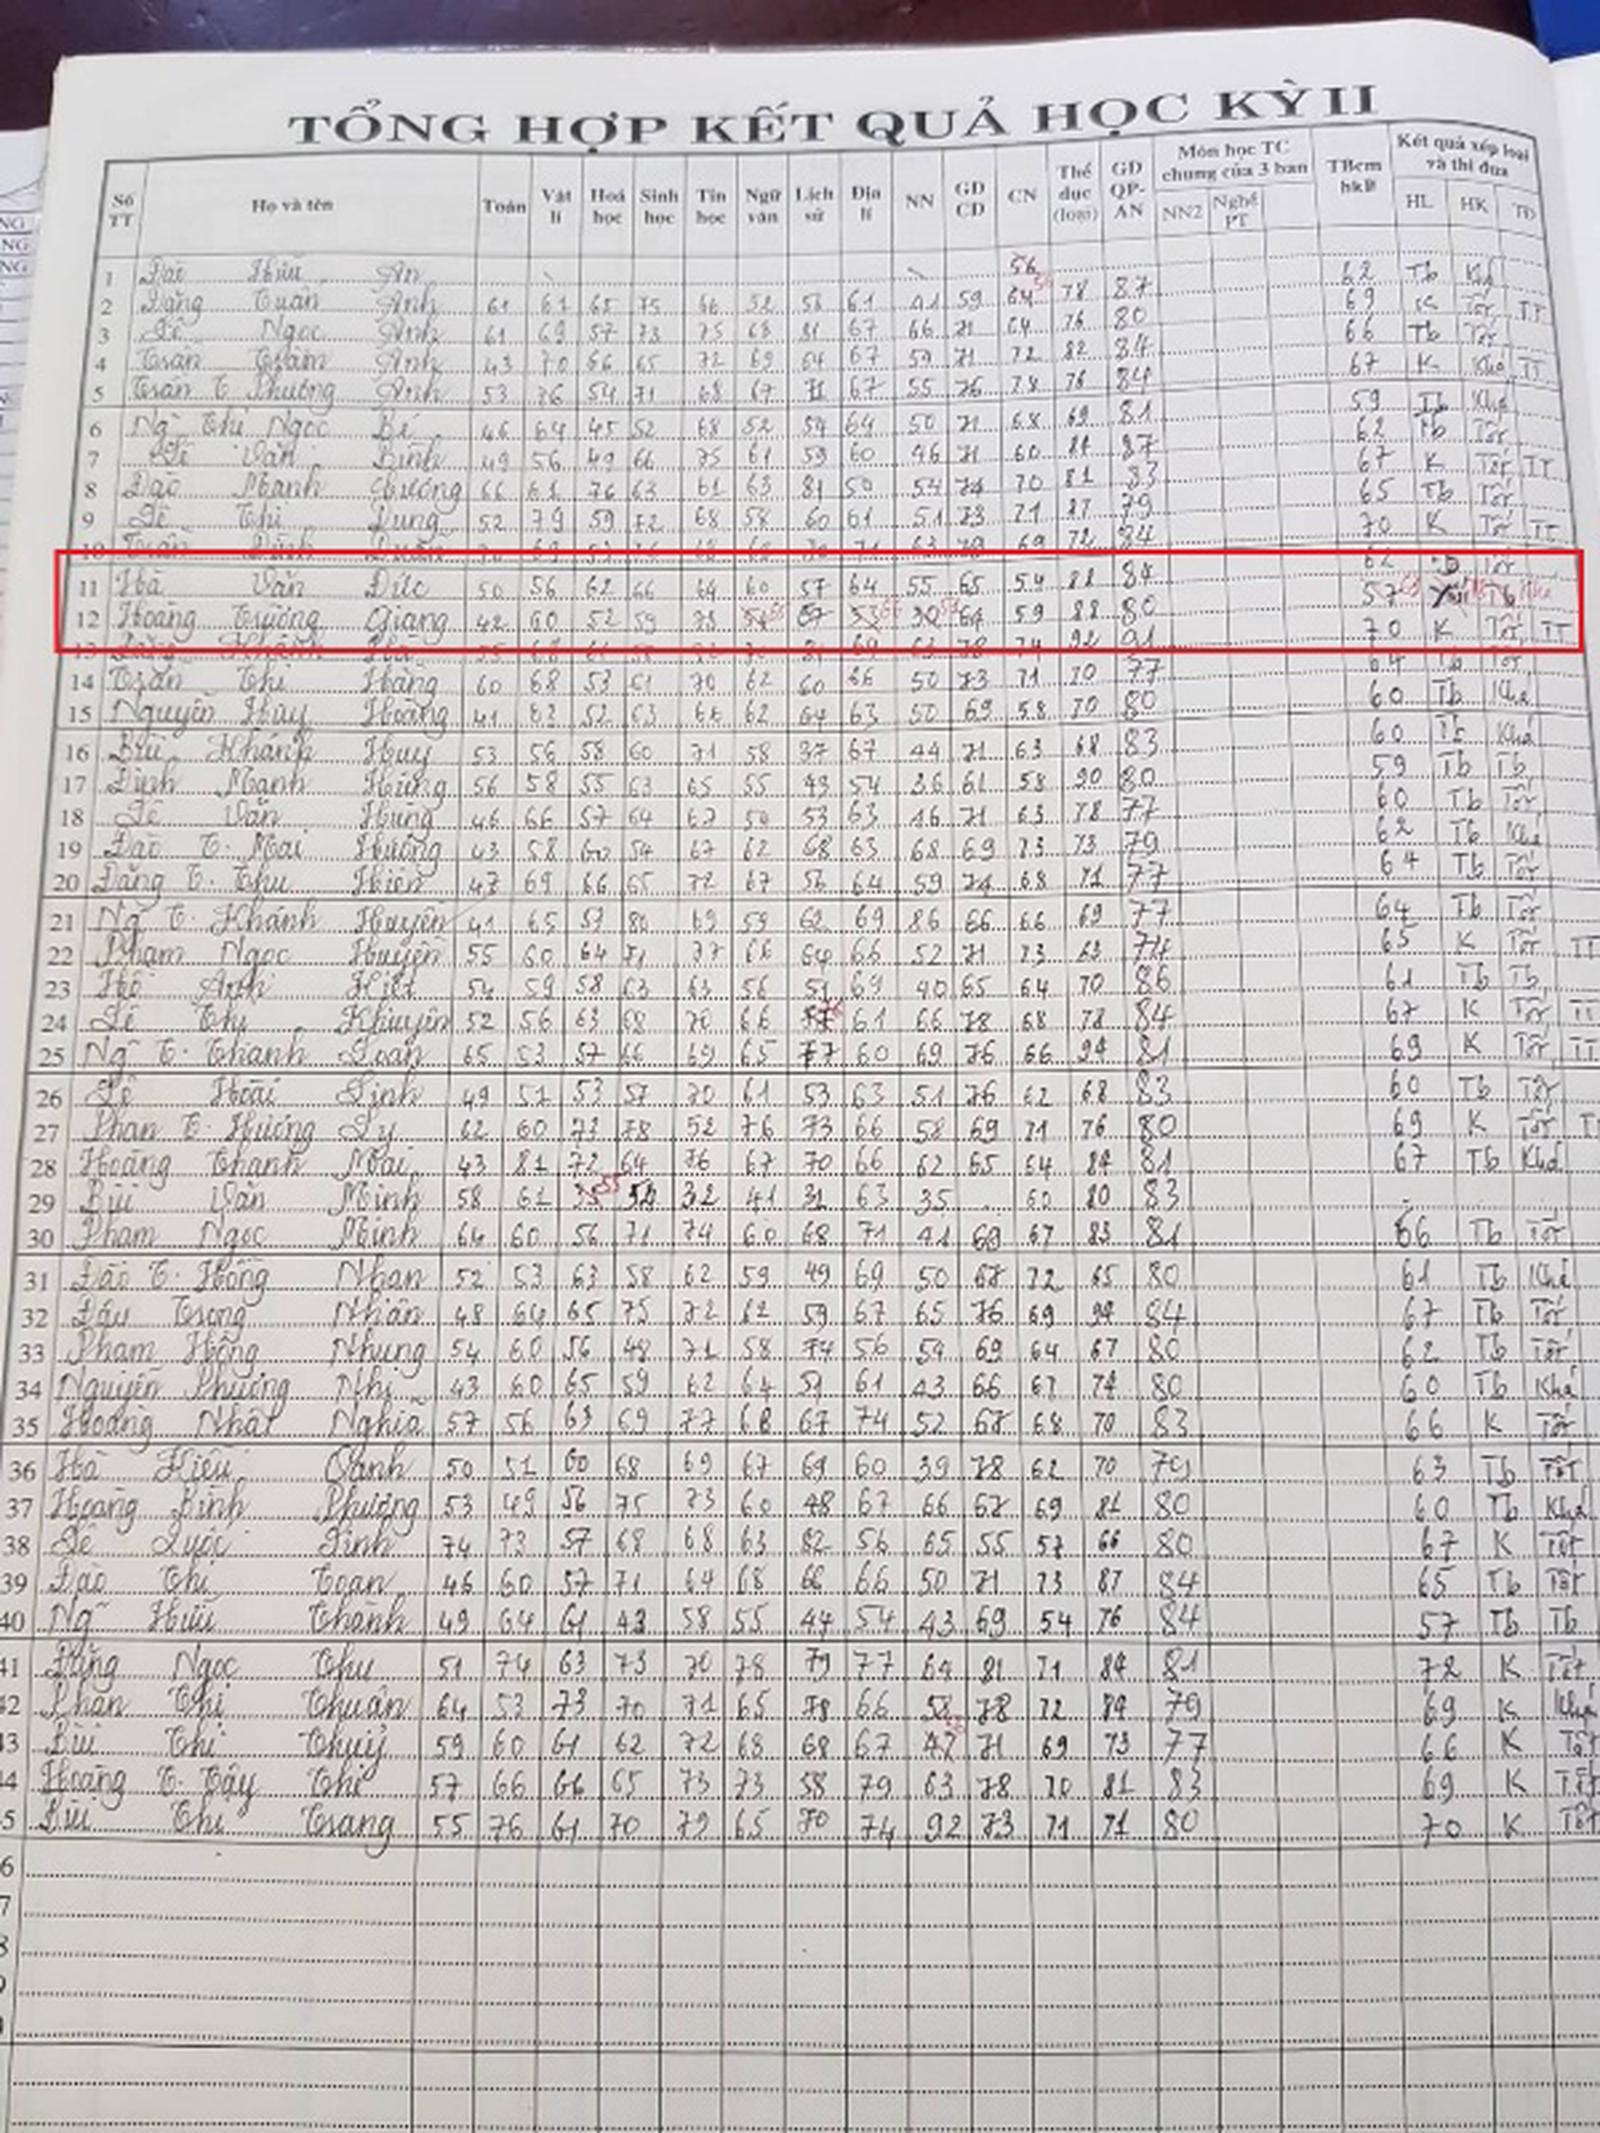 TỔNG HỢP KẾT QUẢ HỌC KỲ II
Số TT Họ và tên Toán Vật lí Hoá học Sinh học Tin học Ngữ văn Lịch sử Địa lí NN GD CD CN Thể dục (loại) GD QP-AN Môn học TC chung của 3 ban NN2 Nghề PT TBcm hkII Kết quả xếp loại và thi đua HL HK TĐ
1 Hữu An
2 Đặng Tuấn Anh 61 61 65 75 66 52 56 61 41 59 78 87 62 Tb Khá
3 Lê Ngọc Anh 61 69 57 73 75 68 81 67 66 71 64 76 80 69 K Tốt TT
4 Trần Trâm Anh 43 70 66 65 72 69 64 67 59 71 72 82 84 66 Tb Tốt
5 Trần T Phương Anh 53 76 54 71 68 67 71 67 55 76 78 76 84 67 K Khá TT
6 Ng~ Thị Ngọc Bé 46 64 45 52 68 52 54 64 50 71 68 69 81 59 Tb Khá
7 Lê Văn Bình 49 56 49 66 75 61 59 60 46 71 60 87 62 Tb Tốt
8 Đào Mạnh Cường 66 61 76 63 61 63 81 50 54 74 70 81 83 67 K Tốt TT
9 Lê Thị Dung 52 79 59 72 68 58 60 61 51 73 71 87 79 65 Tb Tốt
10 Trần 69 72 84 70 K Tốt TT
11 Hà Văn Đức 50 56 62 66 64 60 57 64 55 65 54 81 84 62 Tb Tốt
12 Hoàng Trường Giang 42 60 52 59 73 67 53 30 64 59 88 80 57 Tb
13 74 92 91 70 K Tốt TT
14 Trần Thị Hằng 60 68 53 61 70 62 60 66 50 73 71 70 77 64 Tb Tốt
15 Nguyễn Huy Hoàng 41 62 52 63 66 62 64 63 50 69 58 70 80 60 Tb Khá
16 Bùi Khánh Huy 53 56 58 60 71 58 37 67 44 71 63 68 83 60 Tb Khá
17 Đinh Mạnh Hùng 56 58 55 63 65 55 43 54 36 61 58 90 80 59 Tb Tb
18 Lê Văn Hùng 46 66 57 64 67 50 53 63 46 71 63 78 77 60 Tb Tốt
19 Đào T. Mai Hương 43 58 60 54 67 62 68 63 68 69 73 73 79 62 Tb Khá
20 Đặng T. Thu Hiền 47 69 66 65 72 67 56 64 59 74 68 71 77 64 Tb Tốt
21 Ng~ T. Khánh Huyền 41 65 59 80 69 59 62 69 86 66 66 69 77 64 Tb Tốt
22 Phạm Ngọc Huyền 55 60 64 71 77 66 64 66 52 71 73 63 74 65 K Tốt TT
23 Hồ Anh Kiệt 54 59 58 63 63 56 51 69 40 65 64 70 86 61 Tb Tb
24 Lê Thị Khuyên 52 56 63 68 70 66 61 66 78 68 78 84 67 K Tốt TT
25 Ng~ T. Thanh Loan 65 53 57 66 69 65 77 60 69 76 66 94 81 69 K Tốt TT
26 Lê Hoài Linh 49 51 53 57 70 61 53 63 51 76 62 68 83 60 Tb Tốt
27 Phan T. Hương Ly 62 60 73 78 52 76 73 66 58 69 71 76 80 69 K Tốt
28 Hoàng Thanh Mai 43 81 72 64 76 67 70 66 62 65 64 84 81 67 Tb Khá
29 Bùi Văn Minh 58 61 55 54 32 41 31 63 35 60 80 83
30 Phạm Ngọc Minh 64 60 56 71 74 60 68 71 41 69 67 83 81 66 Tb Tốt
31 Đào T. Hồng Nhan 52 53 63 58 62 59 49 69 50 68 72 65 80 61 Tb Khá
32 Đậu Trọng Nhân 48 64 65 75 72 62 59 67 65 76 69 94 84 67 Tb Tốt
33 Phạm Hồng Nhung 54 60 56 48 71 58 74 56 59 69 64 67 80 62 Tb Tốt
34 Nguyễn Phương Nhi 43 60 65 59 62 64 51 61 43 66 67 74 80 60 Tb Khá
35 Hoàng Nhật Nghĩa 57 56 63 69 77 68 67 74 52 68 68 70 83 66 K Tốt
36 Hà Kiều Oanh 50 51 60 68 69 67 69 60 39 78 62 70 79 63 Tb Tốt
37 Hoàng Bình Phương 53 49 56 75 73 60 48 67 66 68 69 81 80 60 Tb Khá
38 Lê Quốc Tình 74 73 57 68 68 63 82 56 65 55 57 66 80 67 K Tốt
39 Đào Thị Toan 46 60 57 71 64 68 66 66 50 71 73 87 84 65 Tb Tốt
40 Ng~ Hữu Thành 49 64 61 43 58 55 44 54 43 69 54 76 84 57 Tb Tb
41 Đặng Ngọc Thu 51 74 63 73 70 78 79 77 64 81 71 84 81 72 K Tốt
42 Phan Thị Thuận 64 53 73 70 71 65 78 66 58 78 72 84 79 69 K Khá
43 Bùi Thị Thuỷ 59 60 61 62 72 68 68 67 47 71 69 73 77 66 K Tốt
44 Hoàng T. Tây Thi 57 66 66 65 73 73 58 79 63 78 70 81 83 69 K Tốt
5 Bùi Thị Trang 55 76 61 70 79 65 70 74 92 73 71 71 80 70 K Tốt
6
7
8